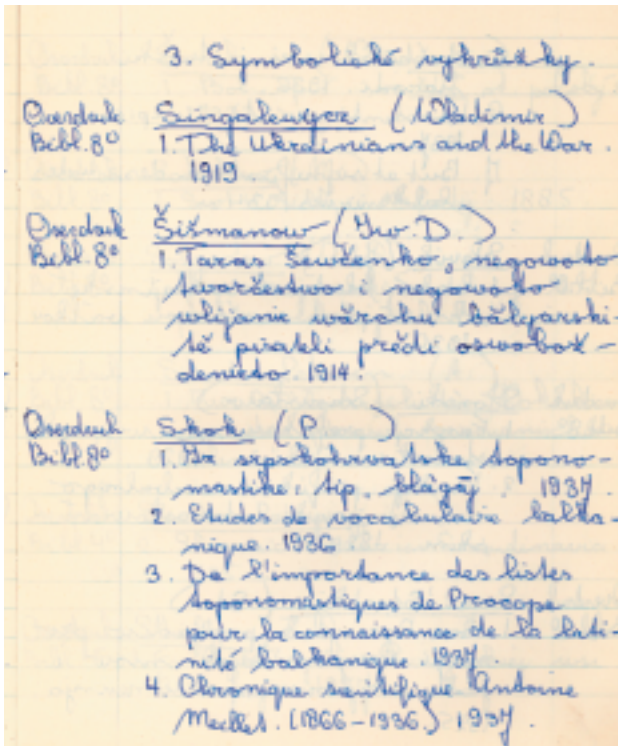 3. Symbolické vykružky.
Oserduck Singalewycz (Wladimir)
Bibl. 8° 1. The Ukrainians and the War.
1919
Oserduck Šišmanow (Iw. D.)
Bibl. 8° 1. Taras Ševženko, negowoto
tworčestwo i negowoto
wlijanie wărchu bălgarski-
tě pisateli prědi oswobož-
denieto. 1914.
Oserduck Skok (P. )
Bibl. 8° 1. Iz srpskohrvatske topono-
mastike: tip. blàgāj. 1937.
2. Etudes de vocabulaire balka-
nique. 1936.
3. De l'importance des listes
toponomastiques de Procope
pour la connaissance de la lati-
nité balkanique 1937.
4. Chronique scientifique Antoine
Meillet. (1866-1936.) 1937.